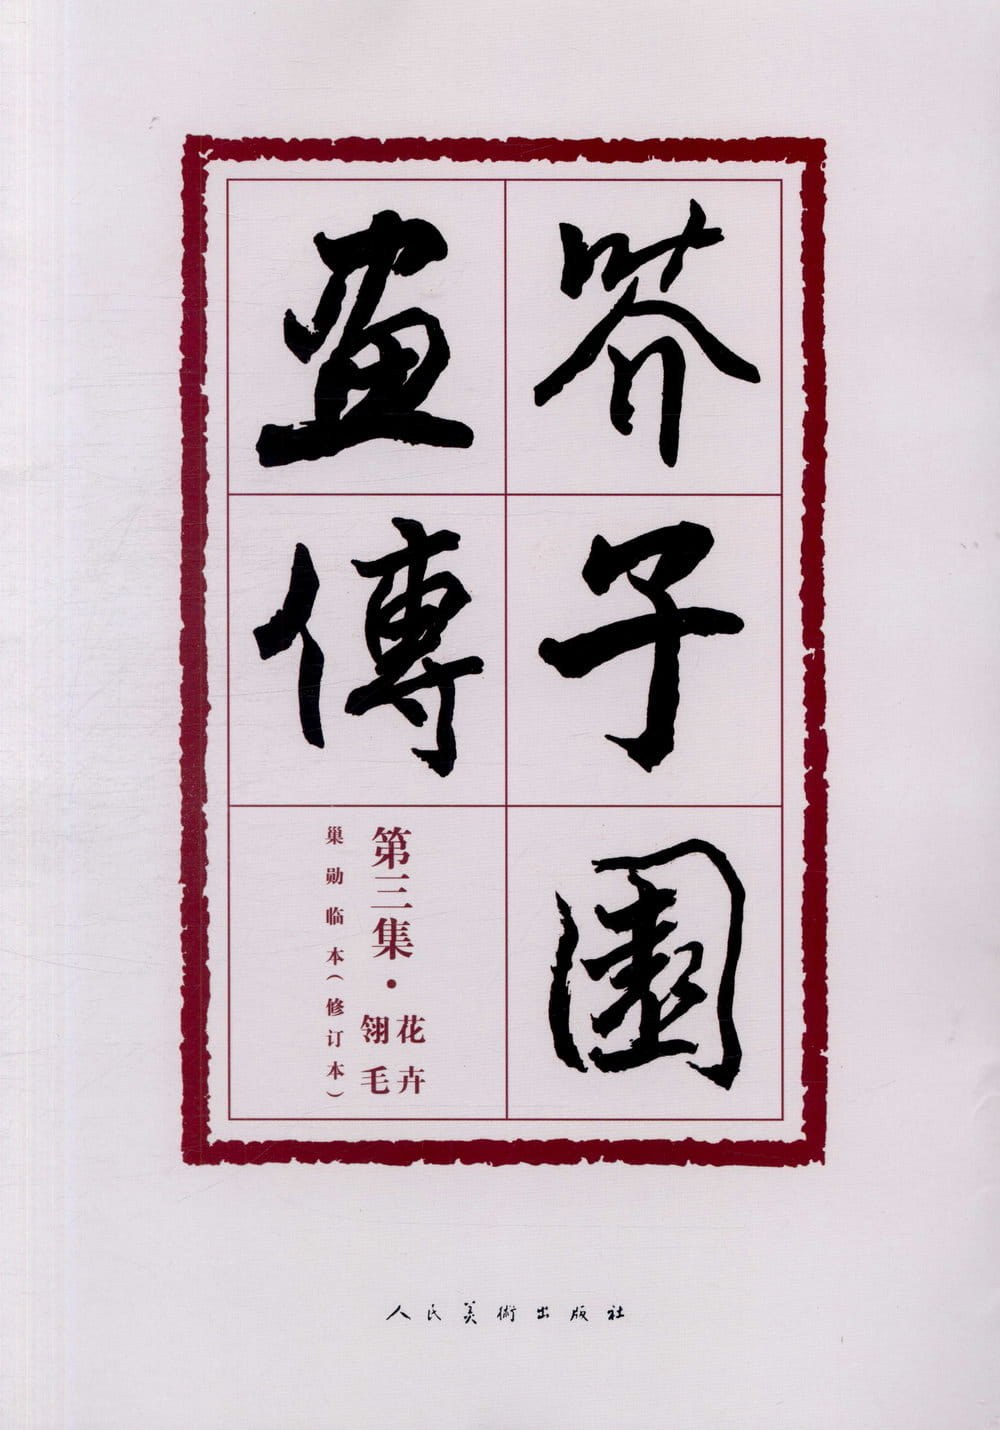 芥子園
畫傳
第三集·
花卉
翎毛
巢勋临本（修订本）
人民美術出版社